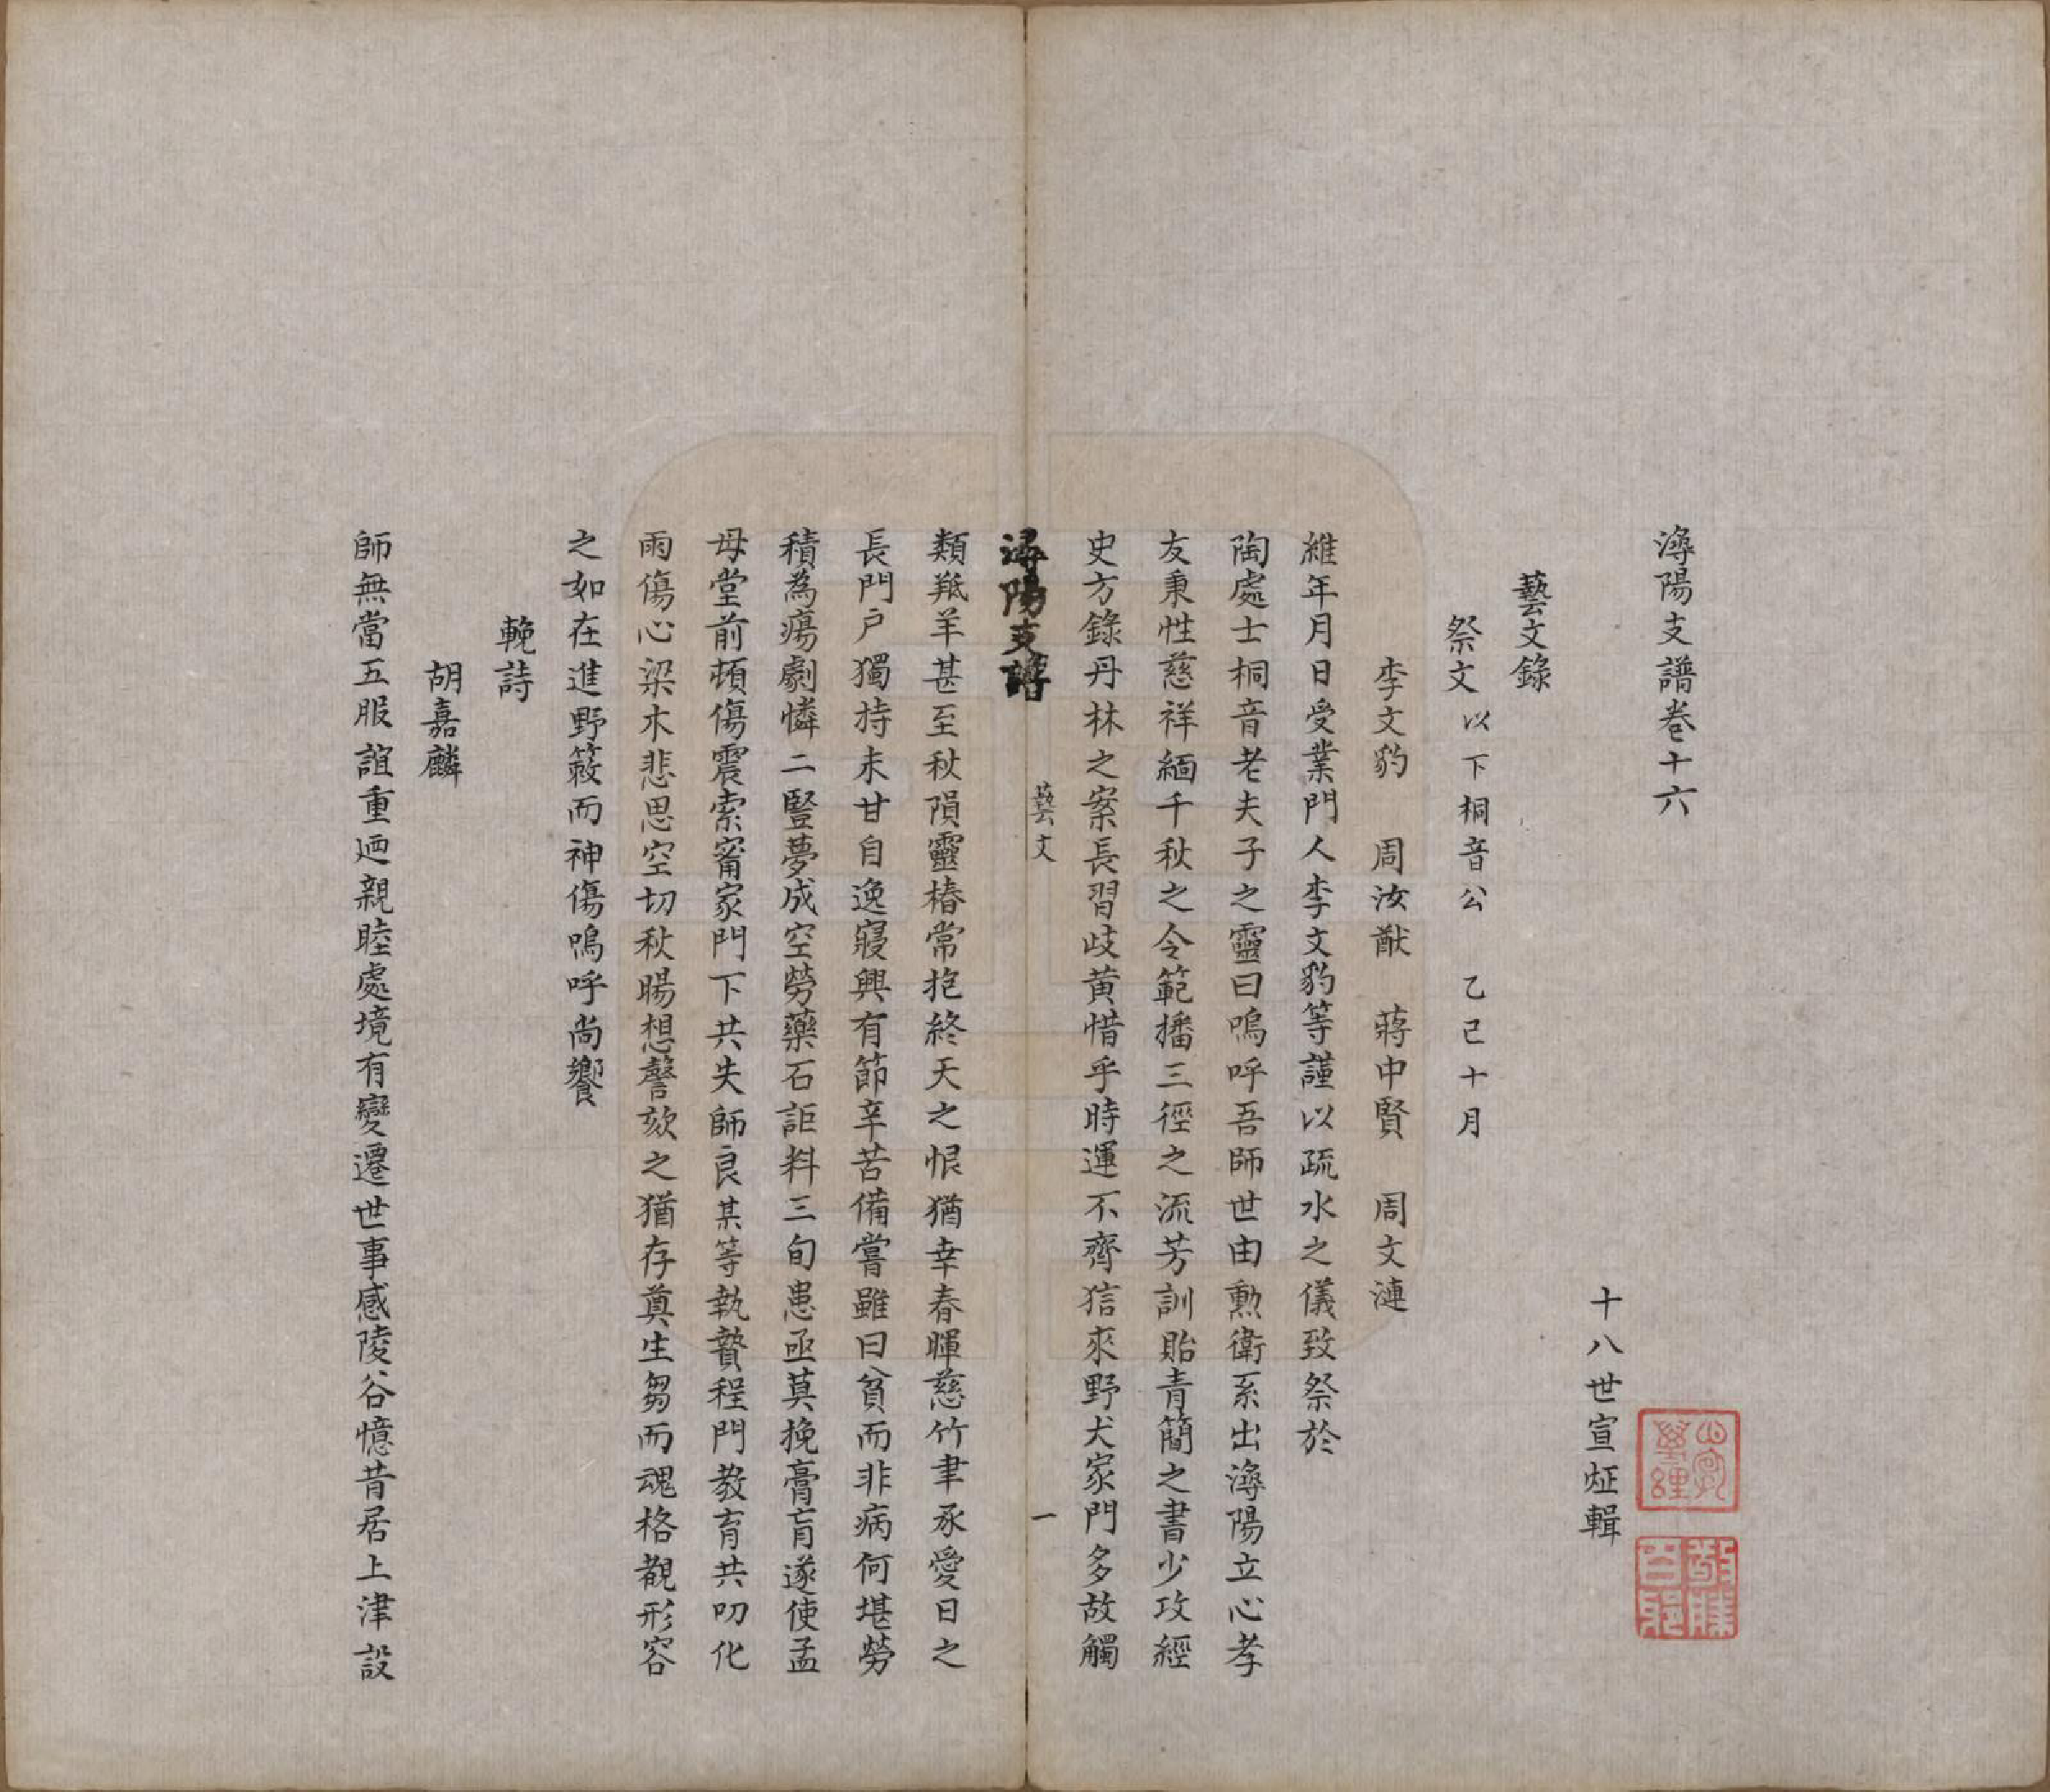 潯陽支譜卷十六
十八世宣炡輯
藝文錄
祭文以下桐音公　乙巳十月
李文豹　周汝猷　蔣中賢　周文漣
維年月日受業門人李文豹等謹以疏水之儀致祭於
陶處士桐音老夫子之靈曰嗚呼吾師世由勲衛系出潯陽立心孝
友秉性慈祥緬千秋之令範播三徑之流芳訓貽青簡之書少攻經
史方錄丹林之案長習歧黄惜乎時運不齊狺來野犬家門多故觸
潯陽支譜　藝文　一
類羝羊甚至秋隕靈椿常抱終天之恨猶幸春暉慈竹聿承愛日之
長門戶獨持未甘自逸寢興有節辛苦備嘗雖曰貧而非病何堪勞
積為瘍劇憐二豎夢成空勞藥石詎料三旬患亟莫挽膏肓遂使孟
母堂前頓傷震索甯家門下共失師良某等執贄程門教育共叨化
雨傷心梁木悲思空切秋暘想謦欬之猶存奠生芻而魂格覩形容
之如在進野蔌而神傷嗚呼尚饗
輓詩
胡嘉麟
師無當五服誼重迺親睦處境有變遷世事感陵谷憶昔居上津設